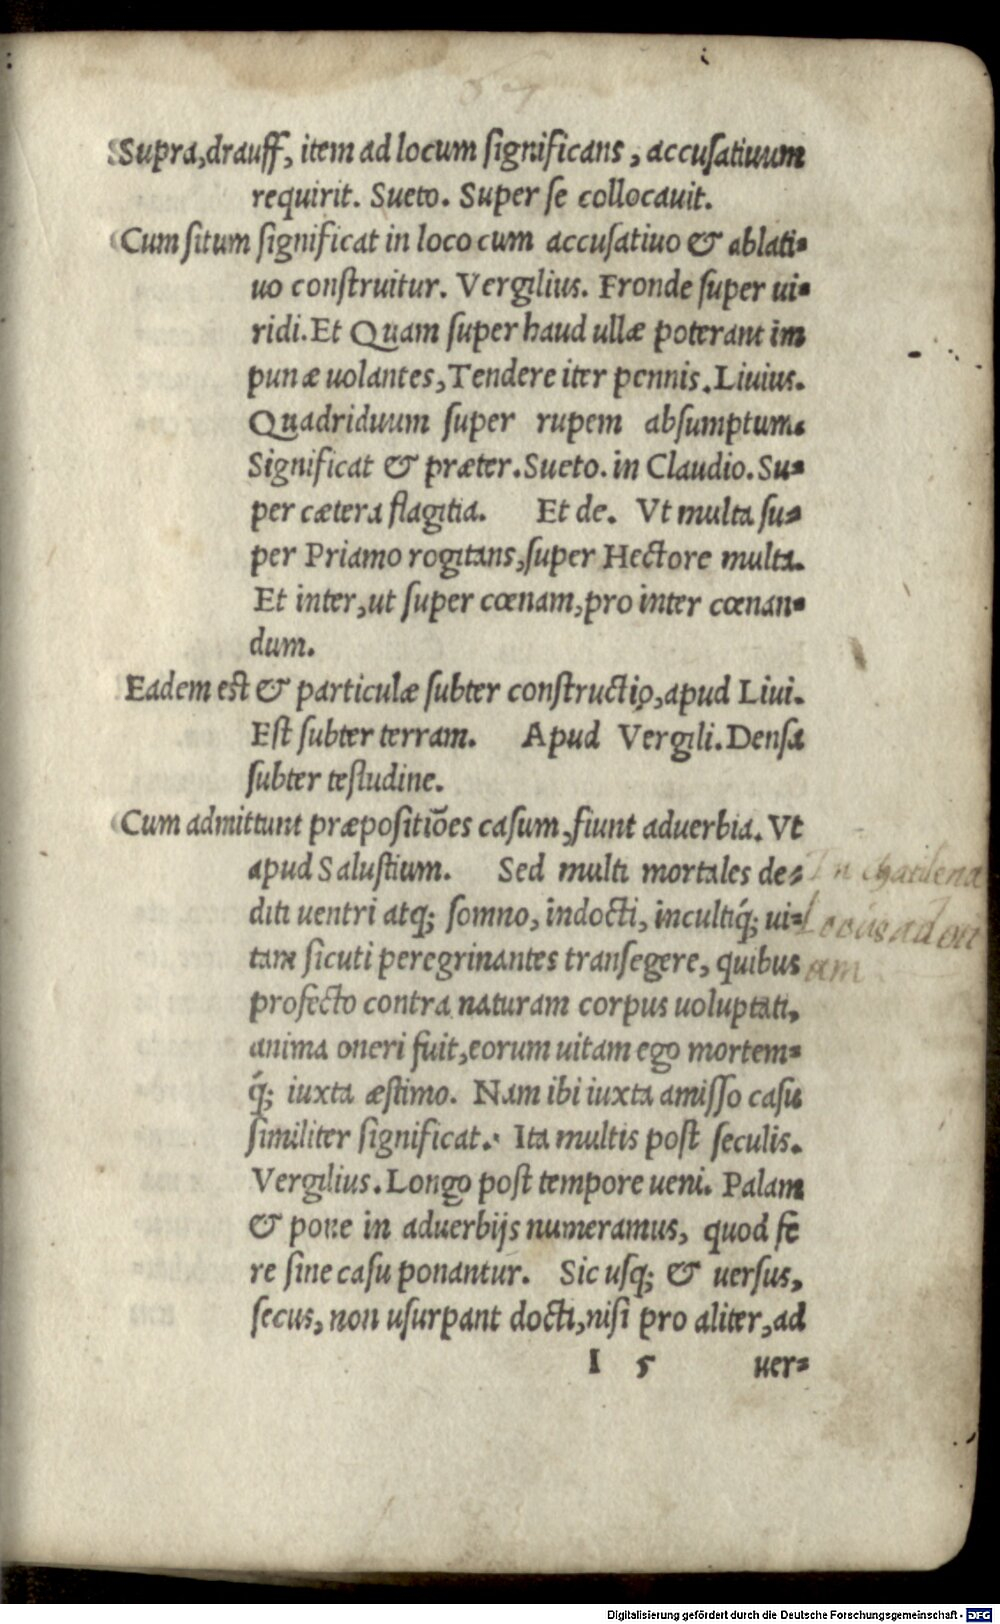 Supra,drauff, item ad locum significans, accusatiuum
requirit. Sueto. Super se collocauit.
Cum situm significat in loco cum accusatiuo & ablati-
uo construitur. Vergilius. Fronde super ui-
ridi. Et Quam super haud ullæ poterant im
punæ uolantes, Tendere iter pennis. Liuius.
Quadriduum super rupem absumptum.
Significat & præter. Sueto. in Claudio. Su-
per cætera flagitia. Et de. Vt multa su-
per Priamo rogitans, super Hectore multa.
Et inter, ut super cœnam, pro inter cœnan-
dum.
Eadem est & particulæ subter constructio, apud Liui.
Est subter terram. Apud Vergili. Densa
subter testudine.
Cum admittunt præpositiões casum, fiunt aduerbia. Vt
apud Salustium. Sed multi mortales de-
diti uentri atq; somno, indocti, incultiq́; ui-
tam sicuti peregrinantes transegere, quibus
profecto contra naturam corpus uoluptati,
anima oneri fuit, eorum uitam ego mortem-
q́; iuxta æstimo. Nam ibi iuxta amisso casu
similiter significat. Ita multis post seculis.
Vergilius. Longo post tempore ueni. Palam
& pone in aduerbijs numeramus, quod fe
re sine casu ponantur. Sic usq; & uersus,
secus, non usurpant docti, nisi pro aliter, ad
I 5 uer-
In
Locus ad
am
Digitalisierung gefördert durch die Deutsche Forschungsgemeinschaft - DFG